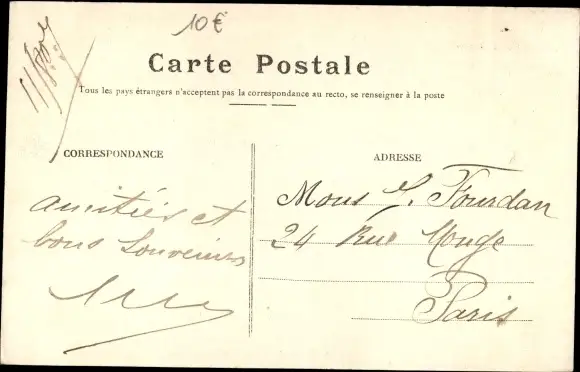 10€
Carte Postale
Tous les pays étrangers n'acceptent pas la correspondance au recto, se renseigner à la poste
CORRESPONDANCE
amitiés et
bons souvenirs
ADRESSE
Mons L. Fourdan
24 Rue Monge
Paris